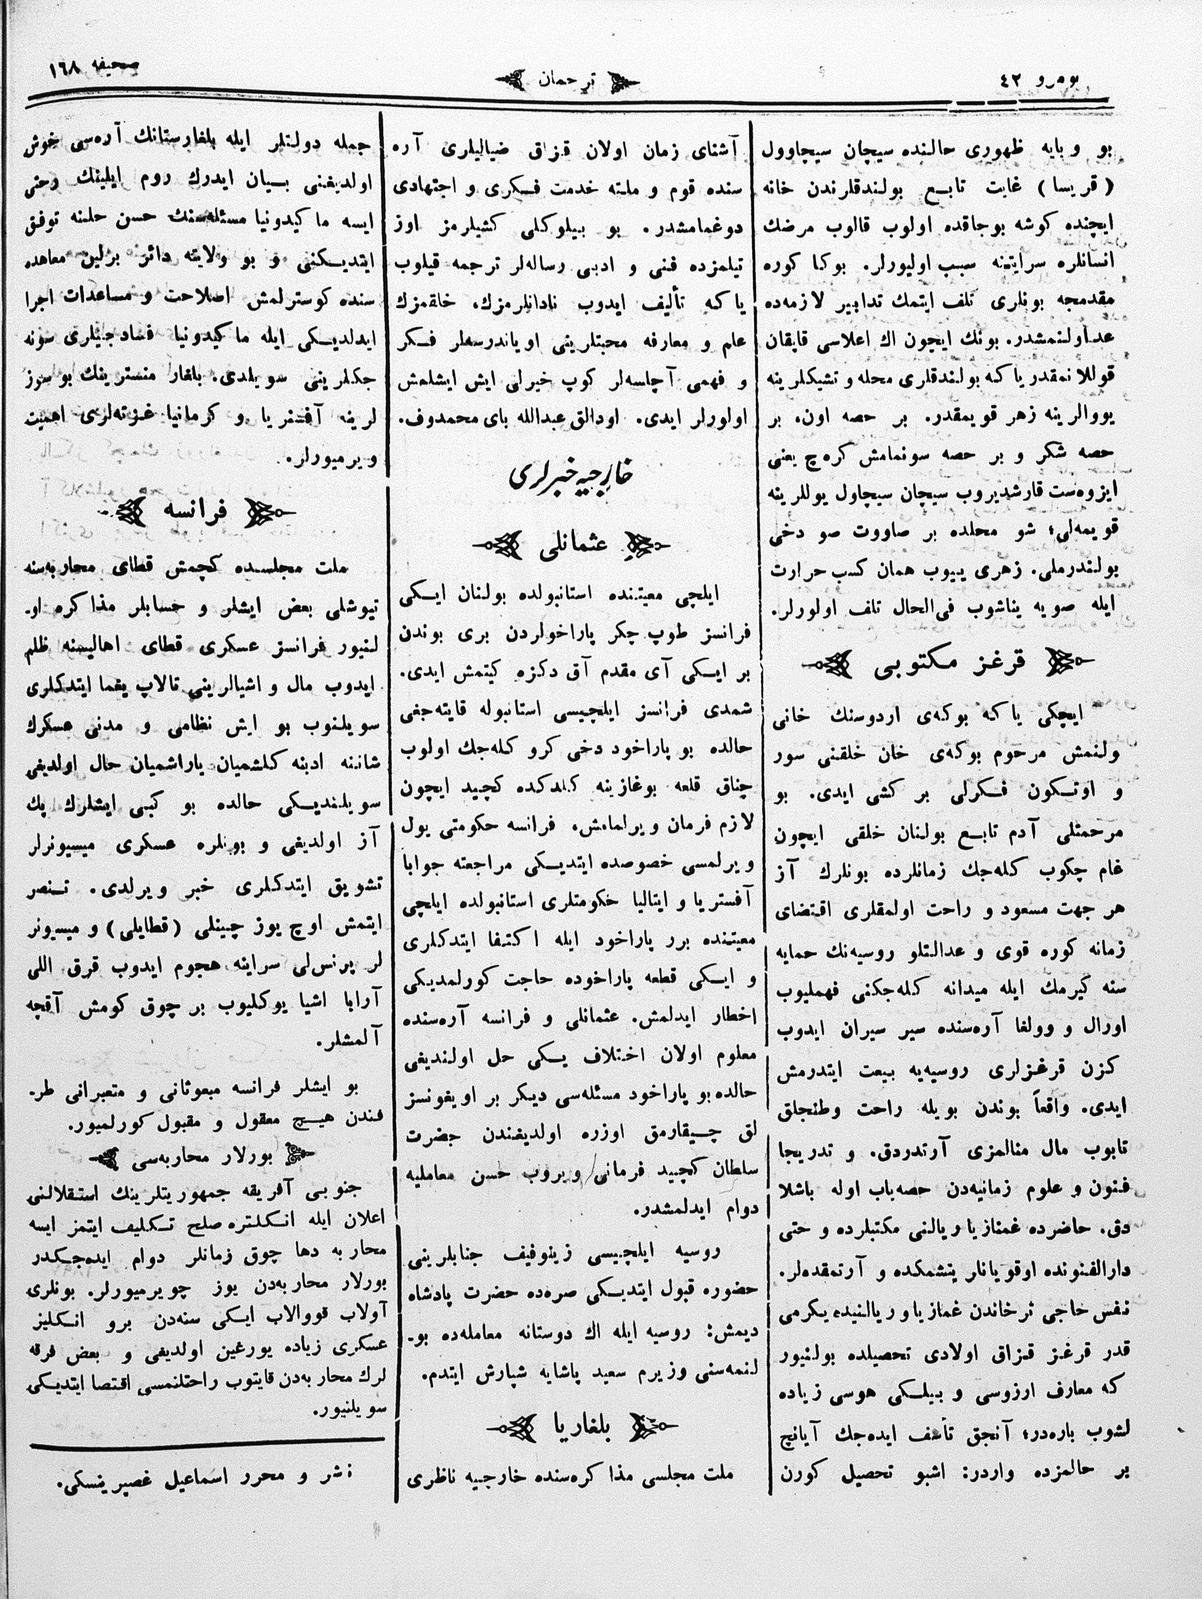 نومرو ٤٢
ترجمان
صحیفه ١٦٨
بو وبایه ظهوری حالنده سیچان سیچاوول
( قریسا ) غایت تابع بولندقلرندن خانه
ایچنده کوشه بوجاقده اولوب قالوب مرضك
انسانلره سرایتنه سبب اولیورلر. بوکا کوره
مقدمجه بونلری تلف ایتمك تدابیر لازمه‌ده
عداولنمشدر. بونك ایچون اك اعلاسی قاپقان
قوللانمقدر یاکه بولندقلری محله و تشیکلرینه
یووالرینه زهر قویمقدر. بر حصه اون، بر
حصه شکر و بر حصه سونمامش کره‌چ یعنی
ایزوه‌ست قارشدیروب سیچان سیچاول یوللرینه
قویمه‌لی؛ شو محلده بر صاووت صو دخی
بولندرملی. زهری ییوب همان کسب حرارت
ایله صویه یناشوب فی‌الحال تلف اولورلر.
قرغز مکتوبی
ایچکی یاکه بوکه‌ی اردوسنك خانی
ولنمش مرحوم بوکه‌ی خان خلقنی سور
و اوتکون فکرلی بر کشی ایدی. بو
مرحمتلی آدم تابع بولنان خلقی ایچون
غام چکوب کله‌جك زمانلرده بونلرك آز
هر جهت مسعود و راحت اولمقلری اقتضای
زمانه کوره قوی و عدالتلو روسیه‌نك حمایه
سنه گیرمك ایله میدانه کله‌جکنی فهملیوب
اورال و وولغا آره‌سنده سیر سیران ایدوب
کزن قرغزلری روسیه‌یه بیعت ایتدرمش
ایدی. واقعاً بوندن بویله راحت وطنجلق
تابوب مال منالمزی آرتدردق. و تدریجا
فنون و علوم زمانیه‌دن حصه‌یاب اوله باشلا
دق. حاضرده غمنازیا ریالنی مکتبلرده و حتی
دارالفنونده اوقویانار یتشمکده و آرتمقده‌لر.
نفس حاجی ترخاندن غمنازیا و ریالنیده یکرمی
قدر قرغز قزاق اولادی تحصیلده بولنیور
که معارف ارزوسی و بیلکی هوسی زیاده
لشوب باره‌در؛ آنجق تأسف ایده‌جك آیانچ
بر حالمزده واردر: اشبو تحصیل کورن
آشنای زمان اولان قزاق ضیالیلری آره
سنده قوم و ملته خدمت فکری و اجتهادی
دوغمامشدر. بو بیلوکلی کشیلرمز اوز
تیلمزده فنی و ادبی رساله‌لر ترجمه قیلوب
یاکه تألیف ایدوب نادانلرمزك، خلقمزك
علم و معارفه محبتلرینی اویاندرسه‌لر فکر
و فهمی آچلسه‌لر کوپ خیرلی ایش ایشلمش
اولورلر ایدی. اودالق عبدالله بای محمدوف.
خارجیه خبرلری
عثمانلی
ایلچی معیتنده استانبولده بولنان ایکی
فرانسز طوپ چکر پاراخولردن بری بوندن
بر ایکی آی مقدم آق دکزه کیتمش ایدی.
شمدی فرانسز ایلچیسی استانبوله قایته‌جغی
حالده بو پاراخود دخی کرو کله‌جك اولوب
چناق قلعه بوغازینه کلدکده کچید ایچون
لازم فرمان ویرلمامش. فرانسه حکومتی یول
ویرلمسی خصوصده ایتدیکی مراجعته جوابا
آفستریا و ایتالیا حکومتلری استانبولده ایلچی
معیتنده برر پاراخود ایله اکتفا ایتدکلری
و ایکی قطعه پاراخوده حاجت کورلمدیکی
اخطار ایدلمش. عثمانلی و فرانسه آره‌سنده
معلوم اولان اختلاف یکی حل اولندیغی
حالده بو پاراخود مسئله‌سی دیکر بر اویغونسز
لق چیقارمق اوزره اولدیغندن حضرت
سلطان کچید فرمانی ویروب حسن معاملیه
دوام ایدلمشدر.
روسیه ایلچیسی زینوفیف جنابلرینی
حضوره قبول ایتدیکی صره‌ده حضرت پادشاه
دیمش: روسیه ایله اك دوستانه معامله‌ده بو-
لنمه‌سنی وزیرم سعید پاشایه شپارش ایتدم.
بلغاریا
ملت مجلسی مذاکره‌سنده خارجیه ناظری
جمله دولتلر ایله بلغارستانك آره‌سی خوش
اولدیغنی بیان ایدرك روم ایلینك وحتی
ایسه ماکیدونیا مسئله‌سنك حسن حلنه توفق
ایتدیکنی و بو ولایته دائر برلین معاهده
سنده کوسترلمش اصلاحت و مساعدات اجرا
ایدلدیکی ایله ماکیدونیا فسادجیلری سونه
جکلرینی سویلدی. بلغار منسترینك بو سوز
لرینه آفستریا و کرمانیا غزته‌لری اهمیت
ویرمیورلر.
فرانسه
ملت مجلسده کچمش قطای محاربه‌سنه
تیوشلی بعض ایشلر و حسابلر مذاکره او-
لنیور فرانسز عسکری قطای اهالیسنه ظلم
ایدوب مال و اشیالرینی تالاپ یغما ایتدکلری
سویلنوب بو ایش نظامی و مدنی عسکرك
شاننه ادبنه کلشمیان یاراشمیان حال اولدیغی
سویلندیکی حالده بو کبی ایشلرك پك
آز اولدیغی و بونلره عسکری میسیونرلر
تشویق ایتدکلری خبر ویرلدی. تنصر
ایتمش اوچ یوز چینلی (قطایلی) و میسیونر
لر پرنس‌لی سراینه هجوم ایدوب قرق اللی
آرابا اشیا یوکلیوب بر چوق کومش آقچه
آلمشلر.
بو ایشلر فرانسه مبعوثانی و متعبرانی طر-
فندن هیچ معقول و مقبول کورلمیور.
بورلار محاربه‌سی
جنوبی آفریقه جمهوریتلرینك استقلالنی
اعلان ایله انکلتره صلح تکلیف ایتمز ایسه
محاربه دها چوق زمانلر دوام ایده‌جکدر
بورلار محاربه‌دن یوز چویرمیورلر. بونلری
آولاب قووالاب ایکی سنه‌دن برو انکلیز
عسکری زیاده یورغین اولدیغی و بعض فرقه
لرك محاربه‌دن قایتوب راحتلنمسی اقتضا ایتدیکی
سویلنیور.
ناشر و محرر اسماعیل غصپرینسکی.